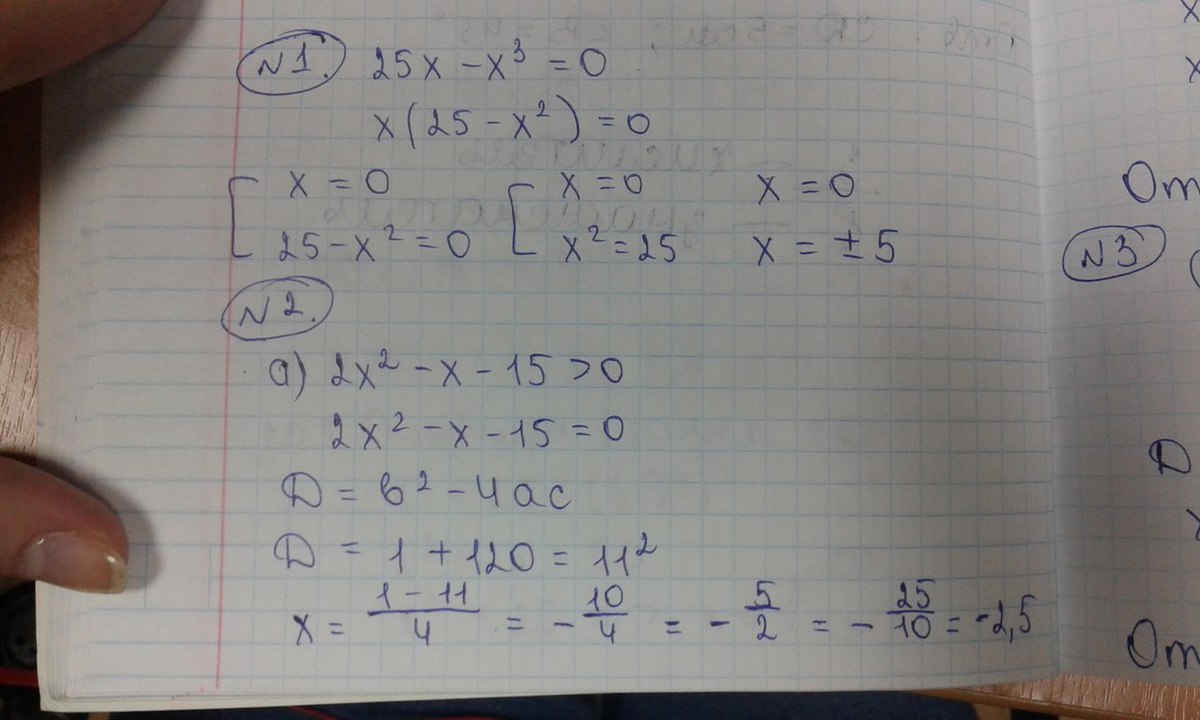 N1. 25x - x³ = 0
x(25 - x²) = 0
[ x = 0 [ x = 0 x = 0
25 - x² = 0 x² = 25 x = ±5
N2.
а) 2x² - x - 15 > 0
2x² - x - 15 = 0
D = b² - 4ac
D = 1 + 120 = 11²
x = (1 - 11)/4 = - 10/4 = - 5/2 = - 25/10 = -2,5
От
N3
D
От